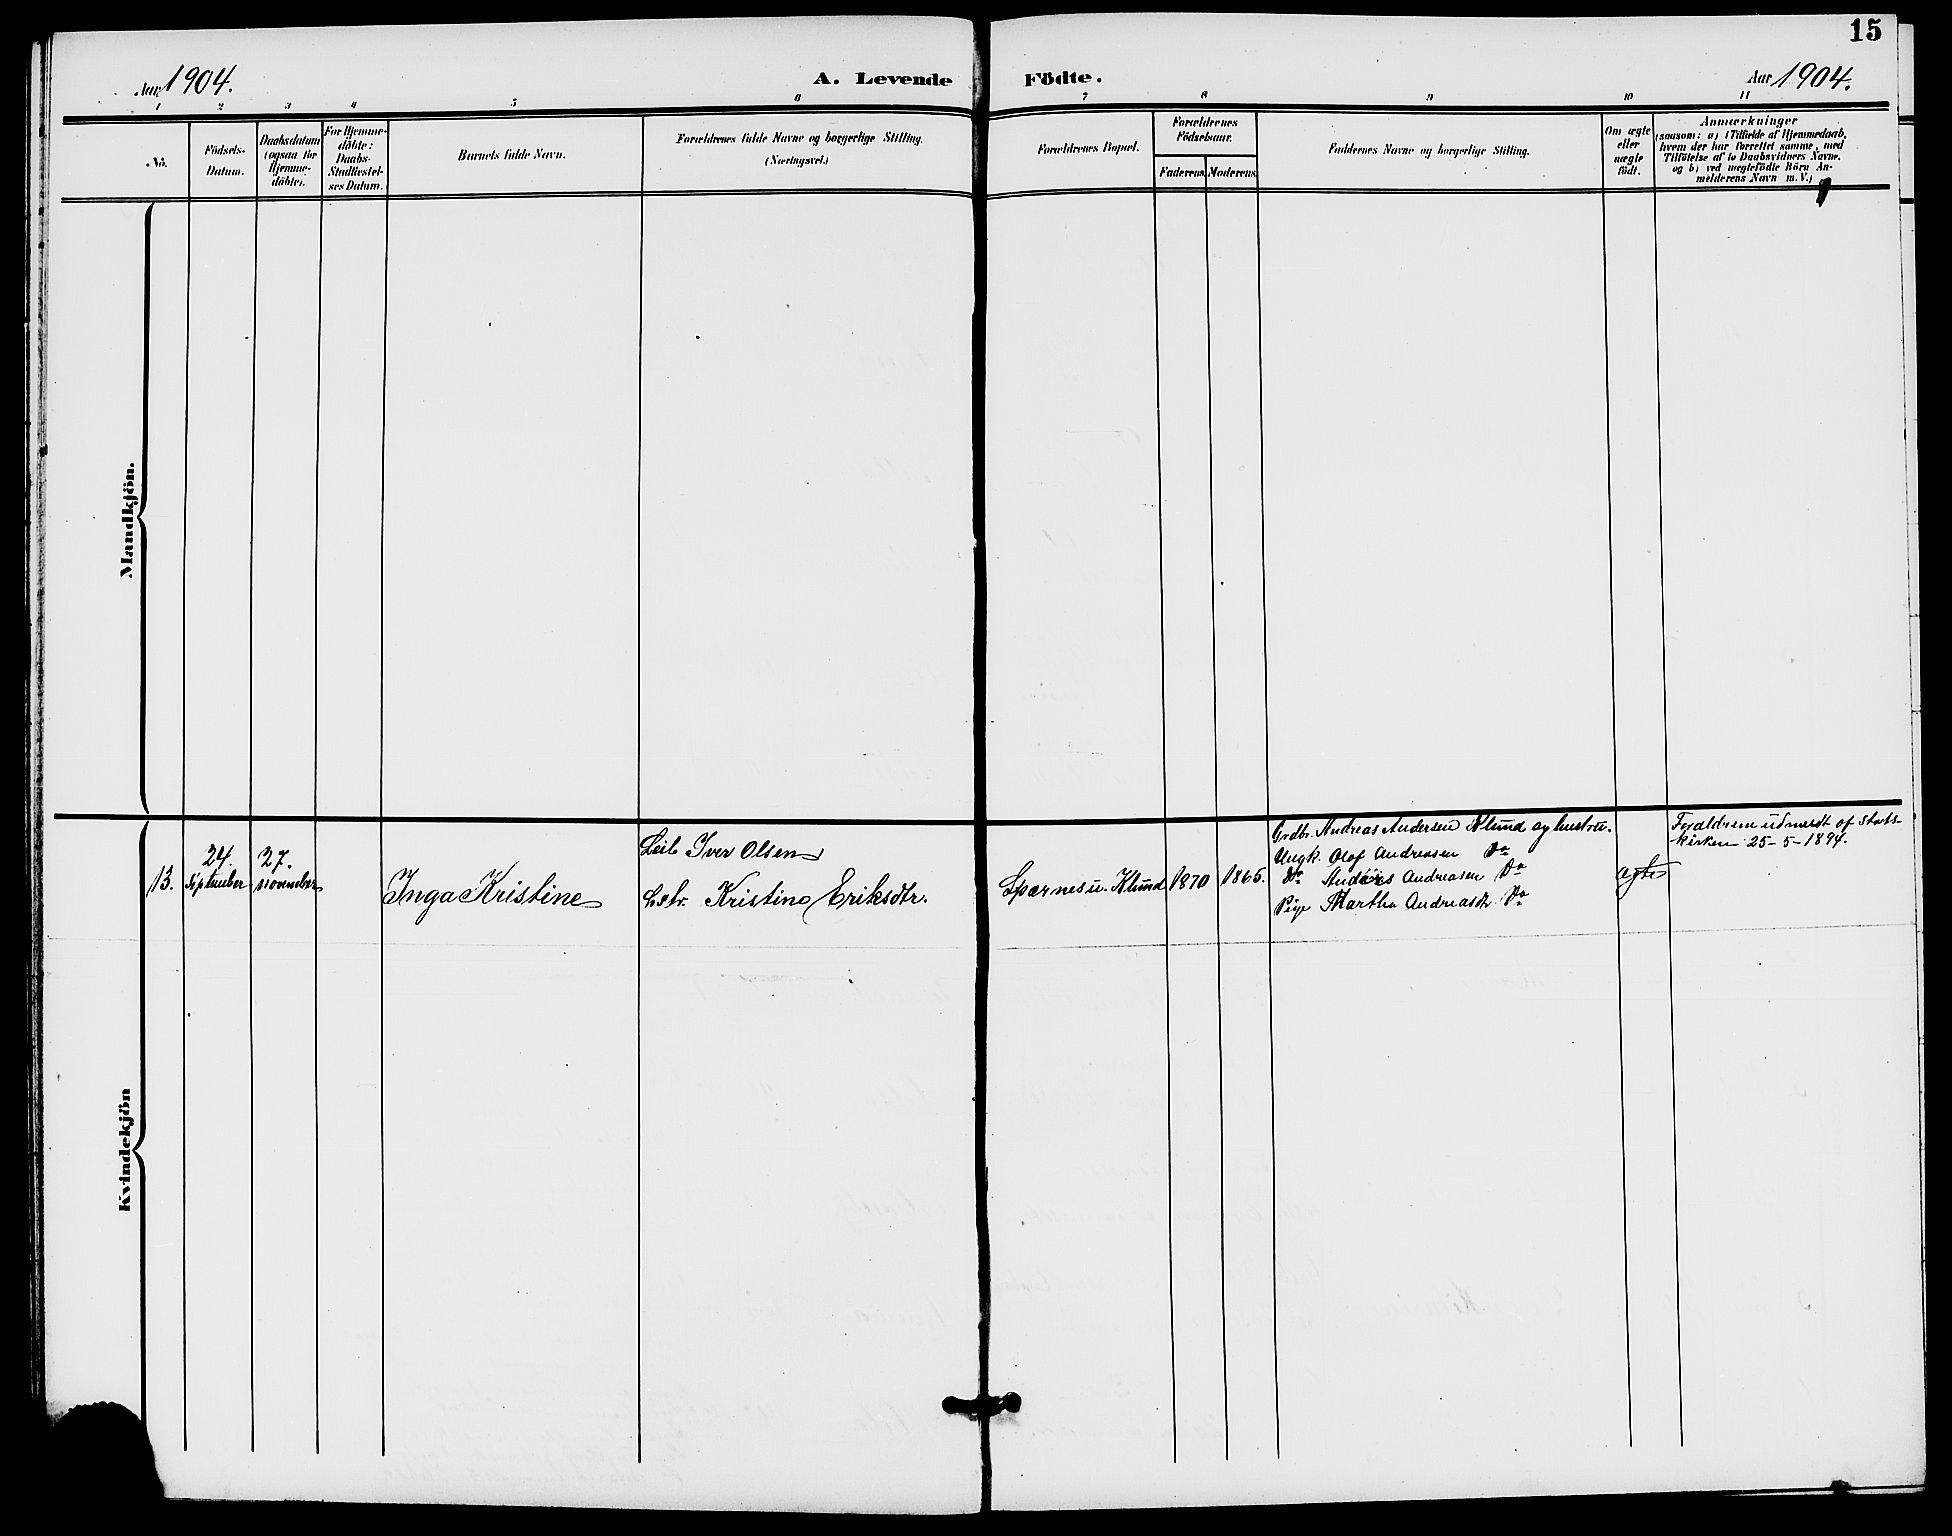 15
Aar 1904.
A. Levende Födte.
Aar 1904.
1 2 3 4 5 6 7 8 9 10 11
No.
Födsels-
Datum.
Daabsdatum
(ogsaa for
Hjemme-
döbte).
For Hjemme-
döbte:
Daabs-
Stadfæstel-
ses Datum.
Barnets fulde Navn.
Forældrenes fulde Navne og borgerlige Stilling.
(Næringsvei.)
Forældrenes Bopæl.
Forældrenes
Födselsaar.
Faderens. Moderens.
Faddernes Navne og borgerlige Stilling.
Om ægte
eller
uægte
födt.
Anmærkninger
(saasom: a) i Tilfælde af Hjemmedaab,
hvem der har forrettet samme, med
Tilföielse af to Daabsvidners Navne,
og b) ved uægtefödte Börn An-
melderens Navn m. V.)
Mandkjön.
Kvindekjön
13.
24.
September
27.
November
Inga Kristine
Iver Olsen
Kristine Eriksdtr.
Klund
1870
1865.
Grdbr. Andreas Andersen Klund og hustru.
Ungk. Olaf Andreasen Do
Do Anders Andreasen Do
Pige Martha Andreasdtr. Do
ægte
Forældrene udmeldt af Stats-
kirken 25-5-1894.